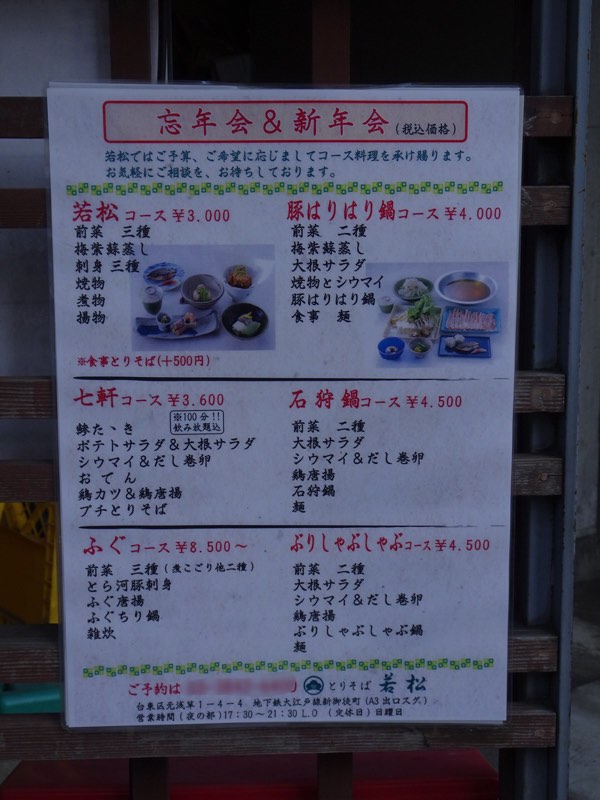 忘年会&新年会(税込価格)
若松ではご予算、ご希望に応じましてコース料理を承け賜ります。
お気軽にご相談を、お待ちしております。
若松コース ¥3.000
前菜 三種
梅紫蘇蒸し
刺身 三種
焼物
煮物
揚物
※食事とりそば(+500円)
豚はりはり鍋コース ¥4.000
前菜 二種
梅紫蘇蒸し
大根サラダ
焼物とシウマイ
豚はりはり鍋
食事 麺
七軒コース ¥3.600
※100分!!
飲み放題込
鯵たゝき
ポテトサラダ&大根サラダ
シウマイ&だし巻卵
おでん
鶏カツ&鶏唐揚
プチとりそば
石狩鍋コース ¥4.500
前菜 二種
大根サラダ
シウマイ&だし巻卵
鶏唐揚
石狩鍋
麺
ふぐコース ¥8.500~
前菜 三種(煮こごり他二種)
とら河豚刺身
ふぐ唐揚
ふぐちり鍋
雑炊
ぶりしゃぶしゃぶコース ¥4.500
前菜 二種
大根サラダ
シウマイ&だし巻卵
鶏唐揚
ぶりしゃぶしゃぶ鍋
麺
ご予約は
とりそば 若松
台東区元浅草1-4-4 地下鉄大江戸線新御徒町(A3出口スグ)
営業時間(夜の部)17:30~21:30L.O (定休日)日曜日